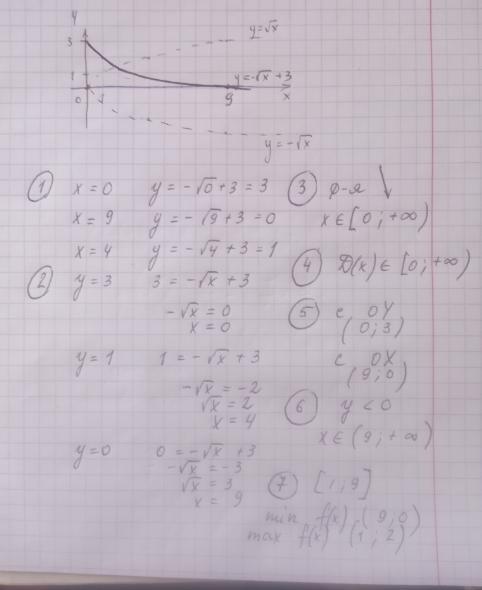 y
3
y=√x
1
y=-√x+3
0
1
9
x
y=-√x
① x=0 y=-√0+3=3
x=9 y=-√9+3=0
x=4 y=-√4+3=1
② y=3 3=-√x+3
-√x=0
x=0
y=1 1=-√x+3
-√x=-2
√x=2
x=4
y=0 0=-√x+3
-√x=-3
√x=3
x=9
③ ф-я ↓
x∈[0;+∞)
④ D(x)∈[0;+∞)
⑤ с OY
(0;3)
с OX
(9;0)
⑥ y<0
x∈(9;+∞)
⑦ [1;9]
min f(x) (9;0)
max f(x) (1;2)